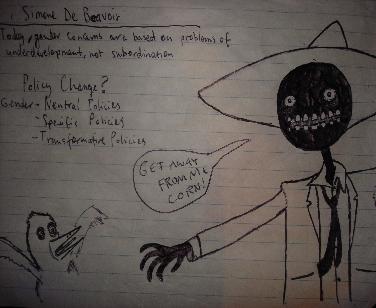 Simone De Beauvoir
Today, gender concerns are based on problems of
underdevelopment, not subordination
Policy Change?
Gender - Neutral Policies
- Specific Policies
- Transformative Policies
GET AWAY
FROM ME
CORN!